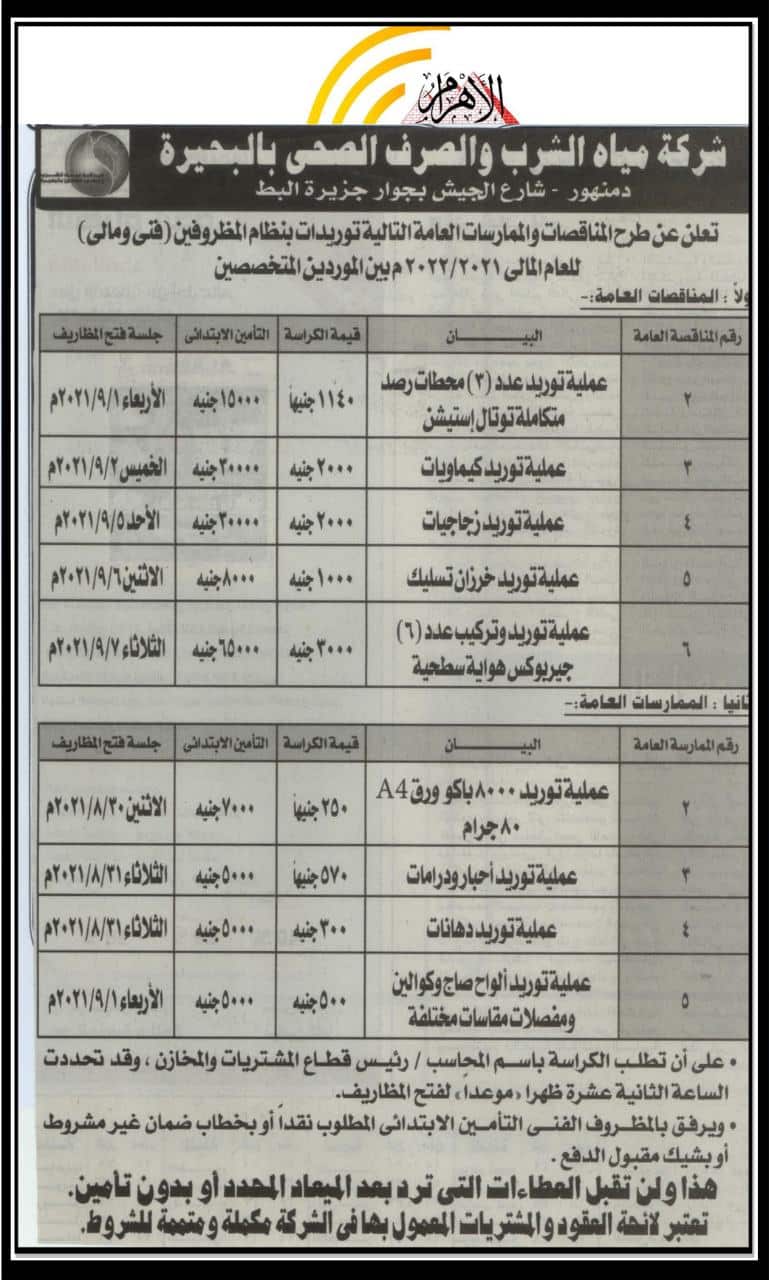 الأهرام
شركة مياه الشرب والصرف الصحى بالبحيرة
دمنهور - شارع الجيش بجوار جزيرة البط
تعلن عن طرح المناقصات والممارسات العامة التالية توريدات بنظام المظروفين (فنى ومالى)
للعام المالى ٢٠٢٢/٢٠٢١م بين الموردين المتخصصين
ولاً : المناقصات العامة:-
رقم المناقصة العامة البيــــان قيمة الكراسة التأمين الابتدائى جلسة فتح المظاريف
٢ عملية توريد عدد (٣) محطات رصد ١١٤٠ جنيهاً ١٥٠٠٠ جنيه الأربعاء ٢٠٢١/٩/١م
متكاملة توتال إستيشن
٣ عملية توريد كيماويات ٢٠٠٠ جنيه ٣٠٠٠٠ جنيه الخميس ٢٠٢١/٩/٢م
٤ عملية توريد زجاجيات ٢٠٠٠ جنيه ٣٠٠٠٠ جنيه الأحد ٢٠٢١/٩/٥م
٥ عملية توريد خرزان تسليك ١٠٠٠ جنيه ٨٠٠٠ جنيه الاثنين ٢٠٢١/٩/٦م
٦ عملية توريد وتركيب عدد (٦) ٣٠٠٠ جنيه ٦٥٠٠٠ جنيه الثلاثاء ٢٠٢١/٩/٧م
جيربوكس هواية سطحية
ثانيا : الممارسات العامة:-
رقم الممارسة العامة البيــــان قيمة الكراسة التأمين الابتدائى جلسة فتح المظاريف
٢ عملية توريد ٨٠٠٠ باكو ورق A4 ٢٥٠ جنيهاً ٧٠٠٠ جنيه الاثنين ٢٠٢١/٨/٣٠م
٨٠ جرام
٣ عملية توريد أحبار ودرامات ٥٧٠ جنيهاً ٥٠٠٠ جنيه الثلاثاء ٢٠٢١/٨/٣١م
٤ عملية توريد دهانات ٣٠٠ جنيه ٥٠٠٠ جنيه الثلاثاء ٢٠٢١/٨/٣١م
٥ عملية توريد ألواح صاج وكوالين ٥٠٠ جنيه ٥٠٠٠ جنيه الأربعاء ٢٠٢١/٩/١م
ومفصلات مقاسات مختلفة
• على أن تطلب الكراسة باسم المحاسب / رئيس قطاع المشتريات والمخازن ، وقد تحددت
الساعة الثانية عشرة ظهرا «موعدا» لفتح المظاريف.
• ويرفق بالمظروف الفنى التأمين الابتدائى المطلوب نقداً أو بخطاب ضمان غير مشروط
أو بشيك مقبول الدفع .
هذا ولن تقبل العطاءات التى ترد بعد الميعاد المحدد أو بدون تأمين.
تعتبر لائحة العقود والمشتريات المعمول بها فى الشركة مكملة ومتممة للشروط.